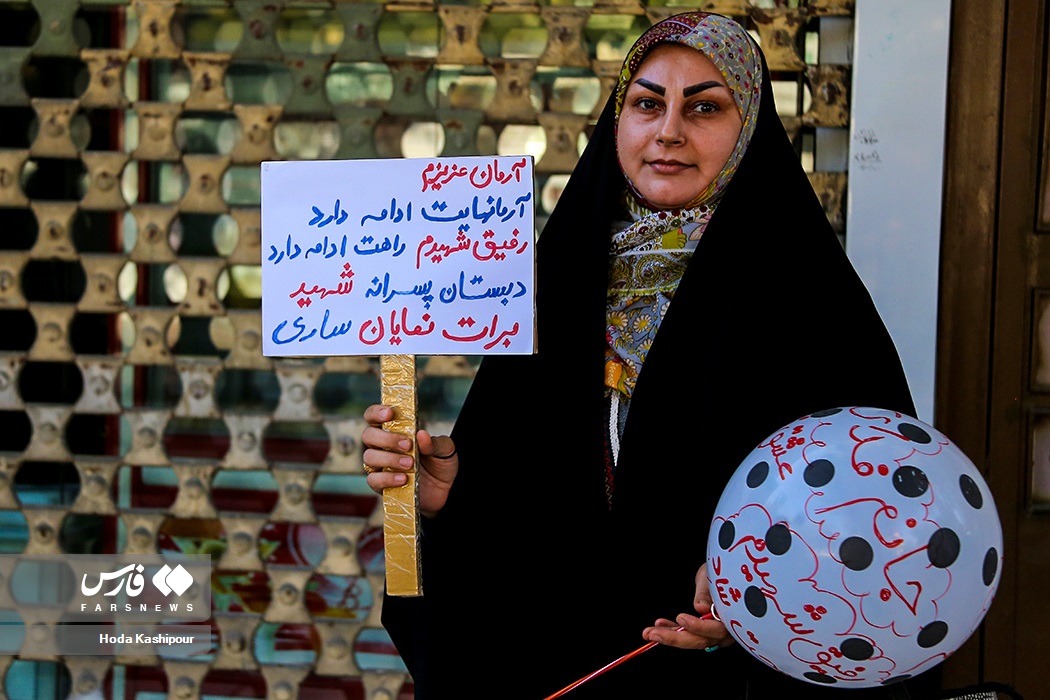 آرمان عزیزم
آرمانهایت ادامه دارد
رفیق شهیدم راهت ادامه دارد
دبستان پسرانه شهید
برات نمایان ساری
جانم
فدای
رفیق شهیدم
فارس
FARSNEWS
Hoda Kashipour